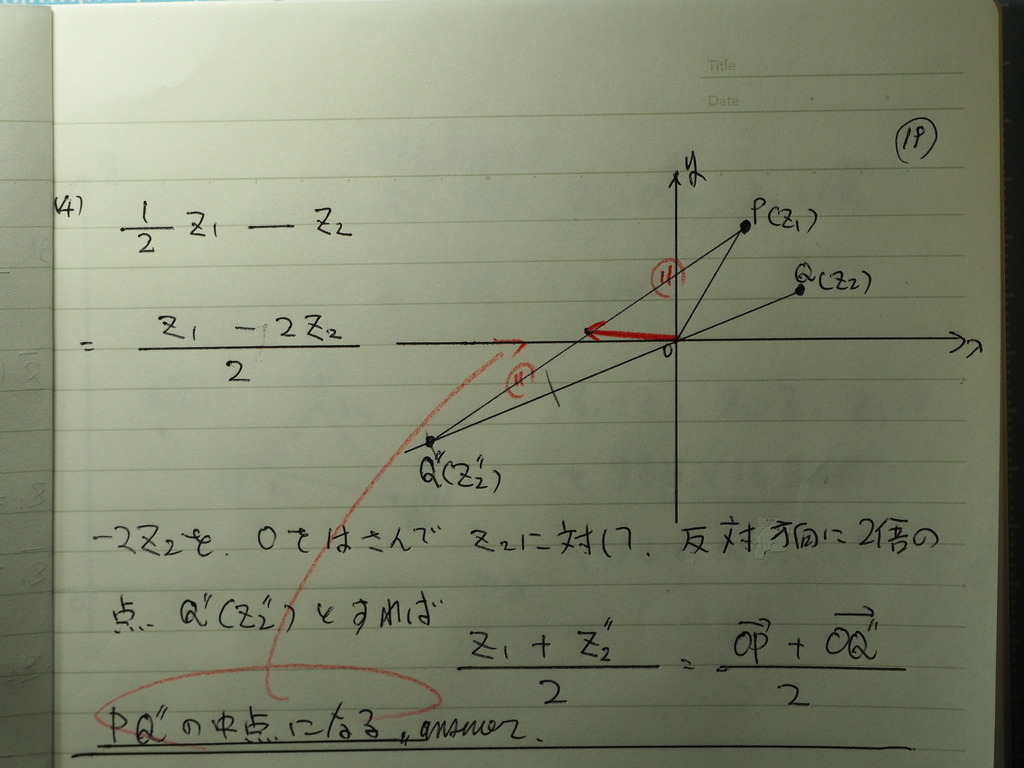 Title
Date
(19)
(4) \frac{1}{2} z₁ — z₂
= \frac{z₁ - 2z₂}{2}
y
P(z₁)
Q(z₂)
x
0
Q″(z₂″)
-2z₂を. 0をはさんで z₂に対して. 反対方向に2倍の
点 Q″(z₂″)とすれば
\frac{z₁ + z₂″}{2} = \frac{\overrightarrow{OP} + \overrightarrow{OQ″}}{2}
PQ″の中点になる 〃 answer.